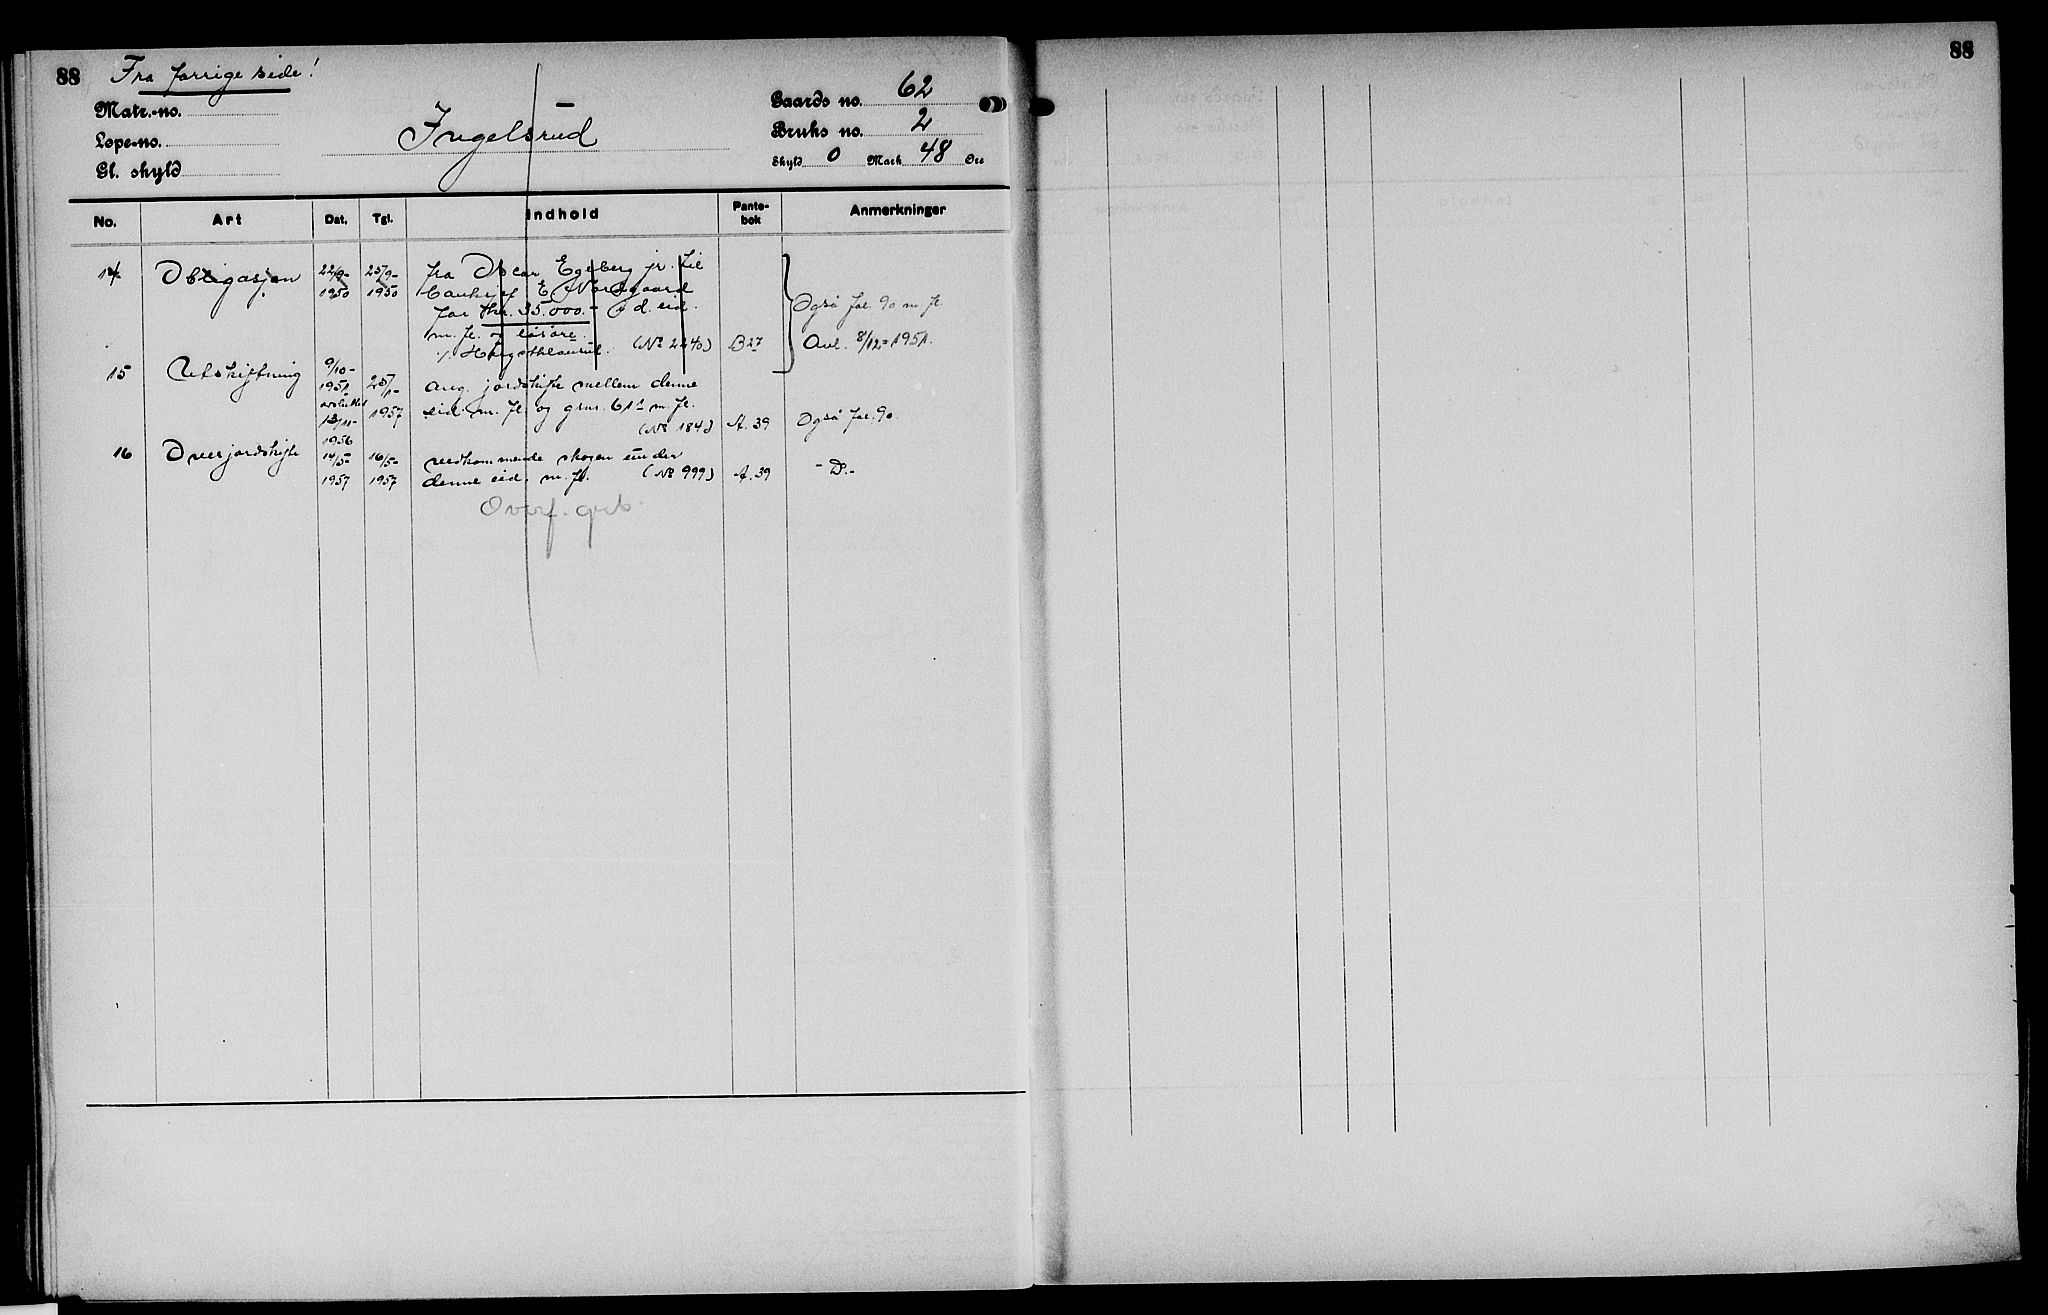 88 Fra forrige side! 88
Matr.-no.
Løpe-no.
Gl. skyld
Ingelsrud
Gaards no. 62
Bruks no. 2
Skyld 0 Mark 48 Øre
No. Art Dat. Tgl. Indhold Pante-bok Anmerkninger
14 Obligasjon 22/9- 25/9- fra Oscar Egeberg jr. til
1950 1950 banksjef E. Norsgaard
for kr. 35.000.- i d. eid. Også fol. 90 m. fl.
m. fl. og løsøre.
(No 2240) B 27 Avl. 8/12-1951.
15 Utskiftning 9/10-
1951 25/1- ang. jordskifte mellem denne
avsluttet 1957 eid. m. fl. og gnr. 61/1 m. fl. Også fol. 90.
13/11- (No 184) A. 39
1956
16 Overjordskifte 14/5- 16/5- vedkommende skogen under
1957 1957 denne eid. m. fl. (No 999) A. 39 - D. -
Overf. grb.